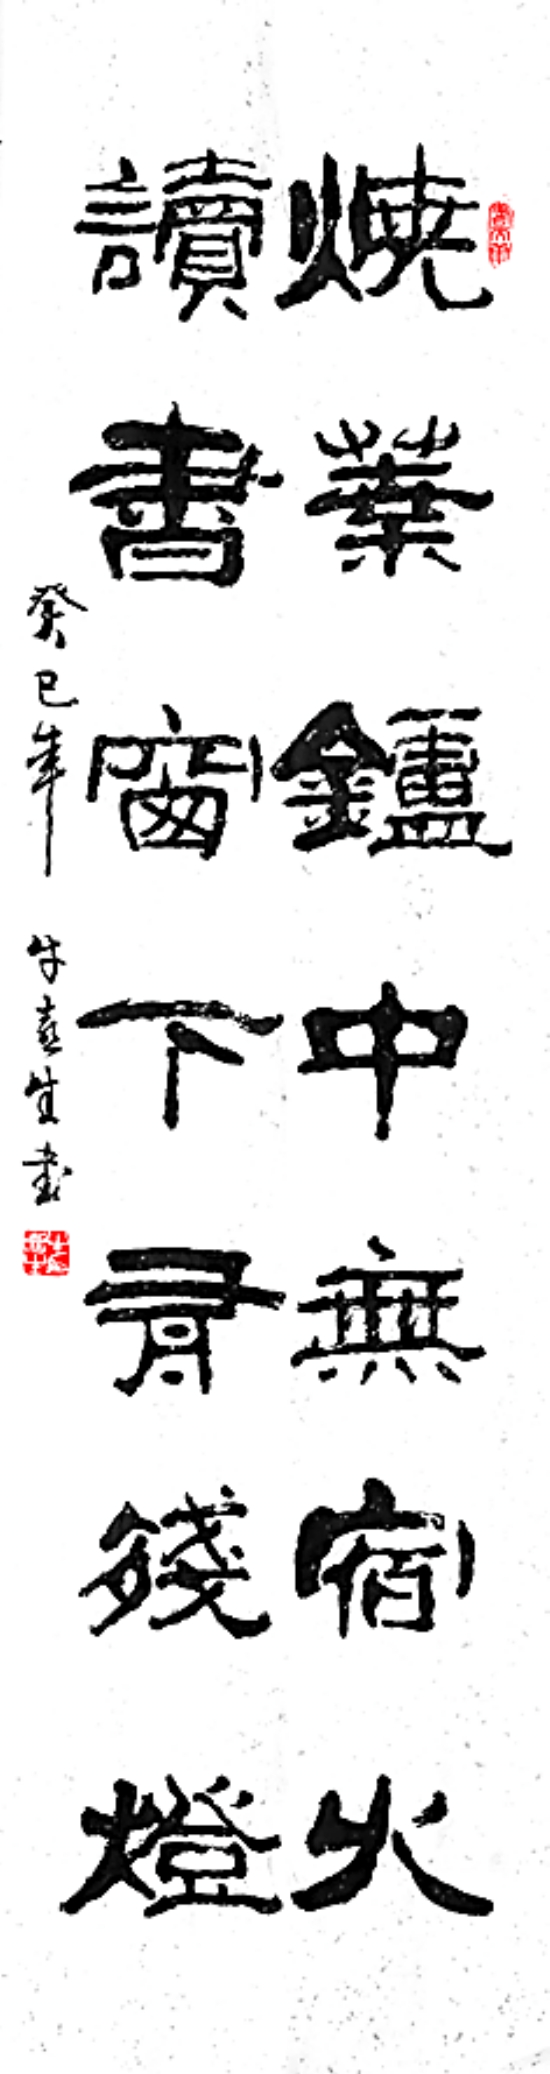 燒葉鑪中無宿火
讀書窗下有殘燈
癸巳年 牛喜生書